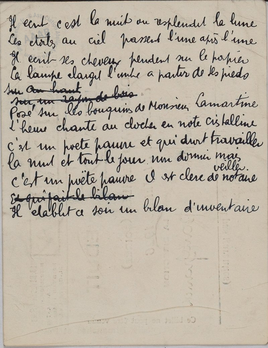 Il écrit c'est la nuit où resplendit la lune
Les étoiles au ciel passent l'une après l'une
Il écrit ses cheveux pendent sur le papier
La lampe élargit l'ombre a partir de ses pieds
sur un haut
sur un rayon de bois
Posé sur les bouquins de Monsieur Lamartine
L'heure chante au clocher en note cristalline
c'est un poète pauvre et qui doit travailler
la nuit et tout le jour non dormir mais
veiller
c'est un poëte pauvre Il est clerc de notaire
Et qui fait le bilan
Il établit ce soir un bilan d'inventaire